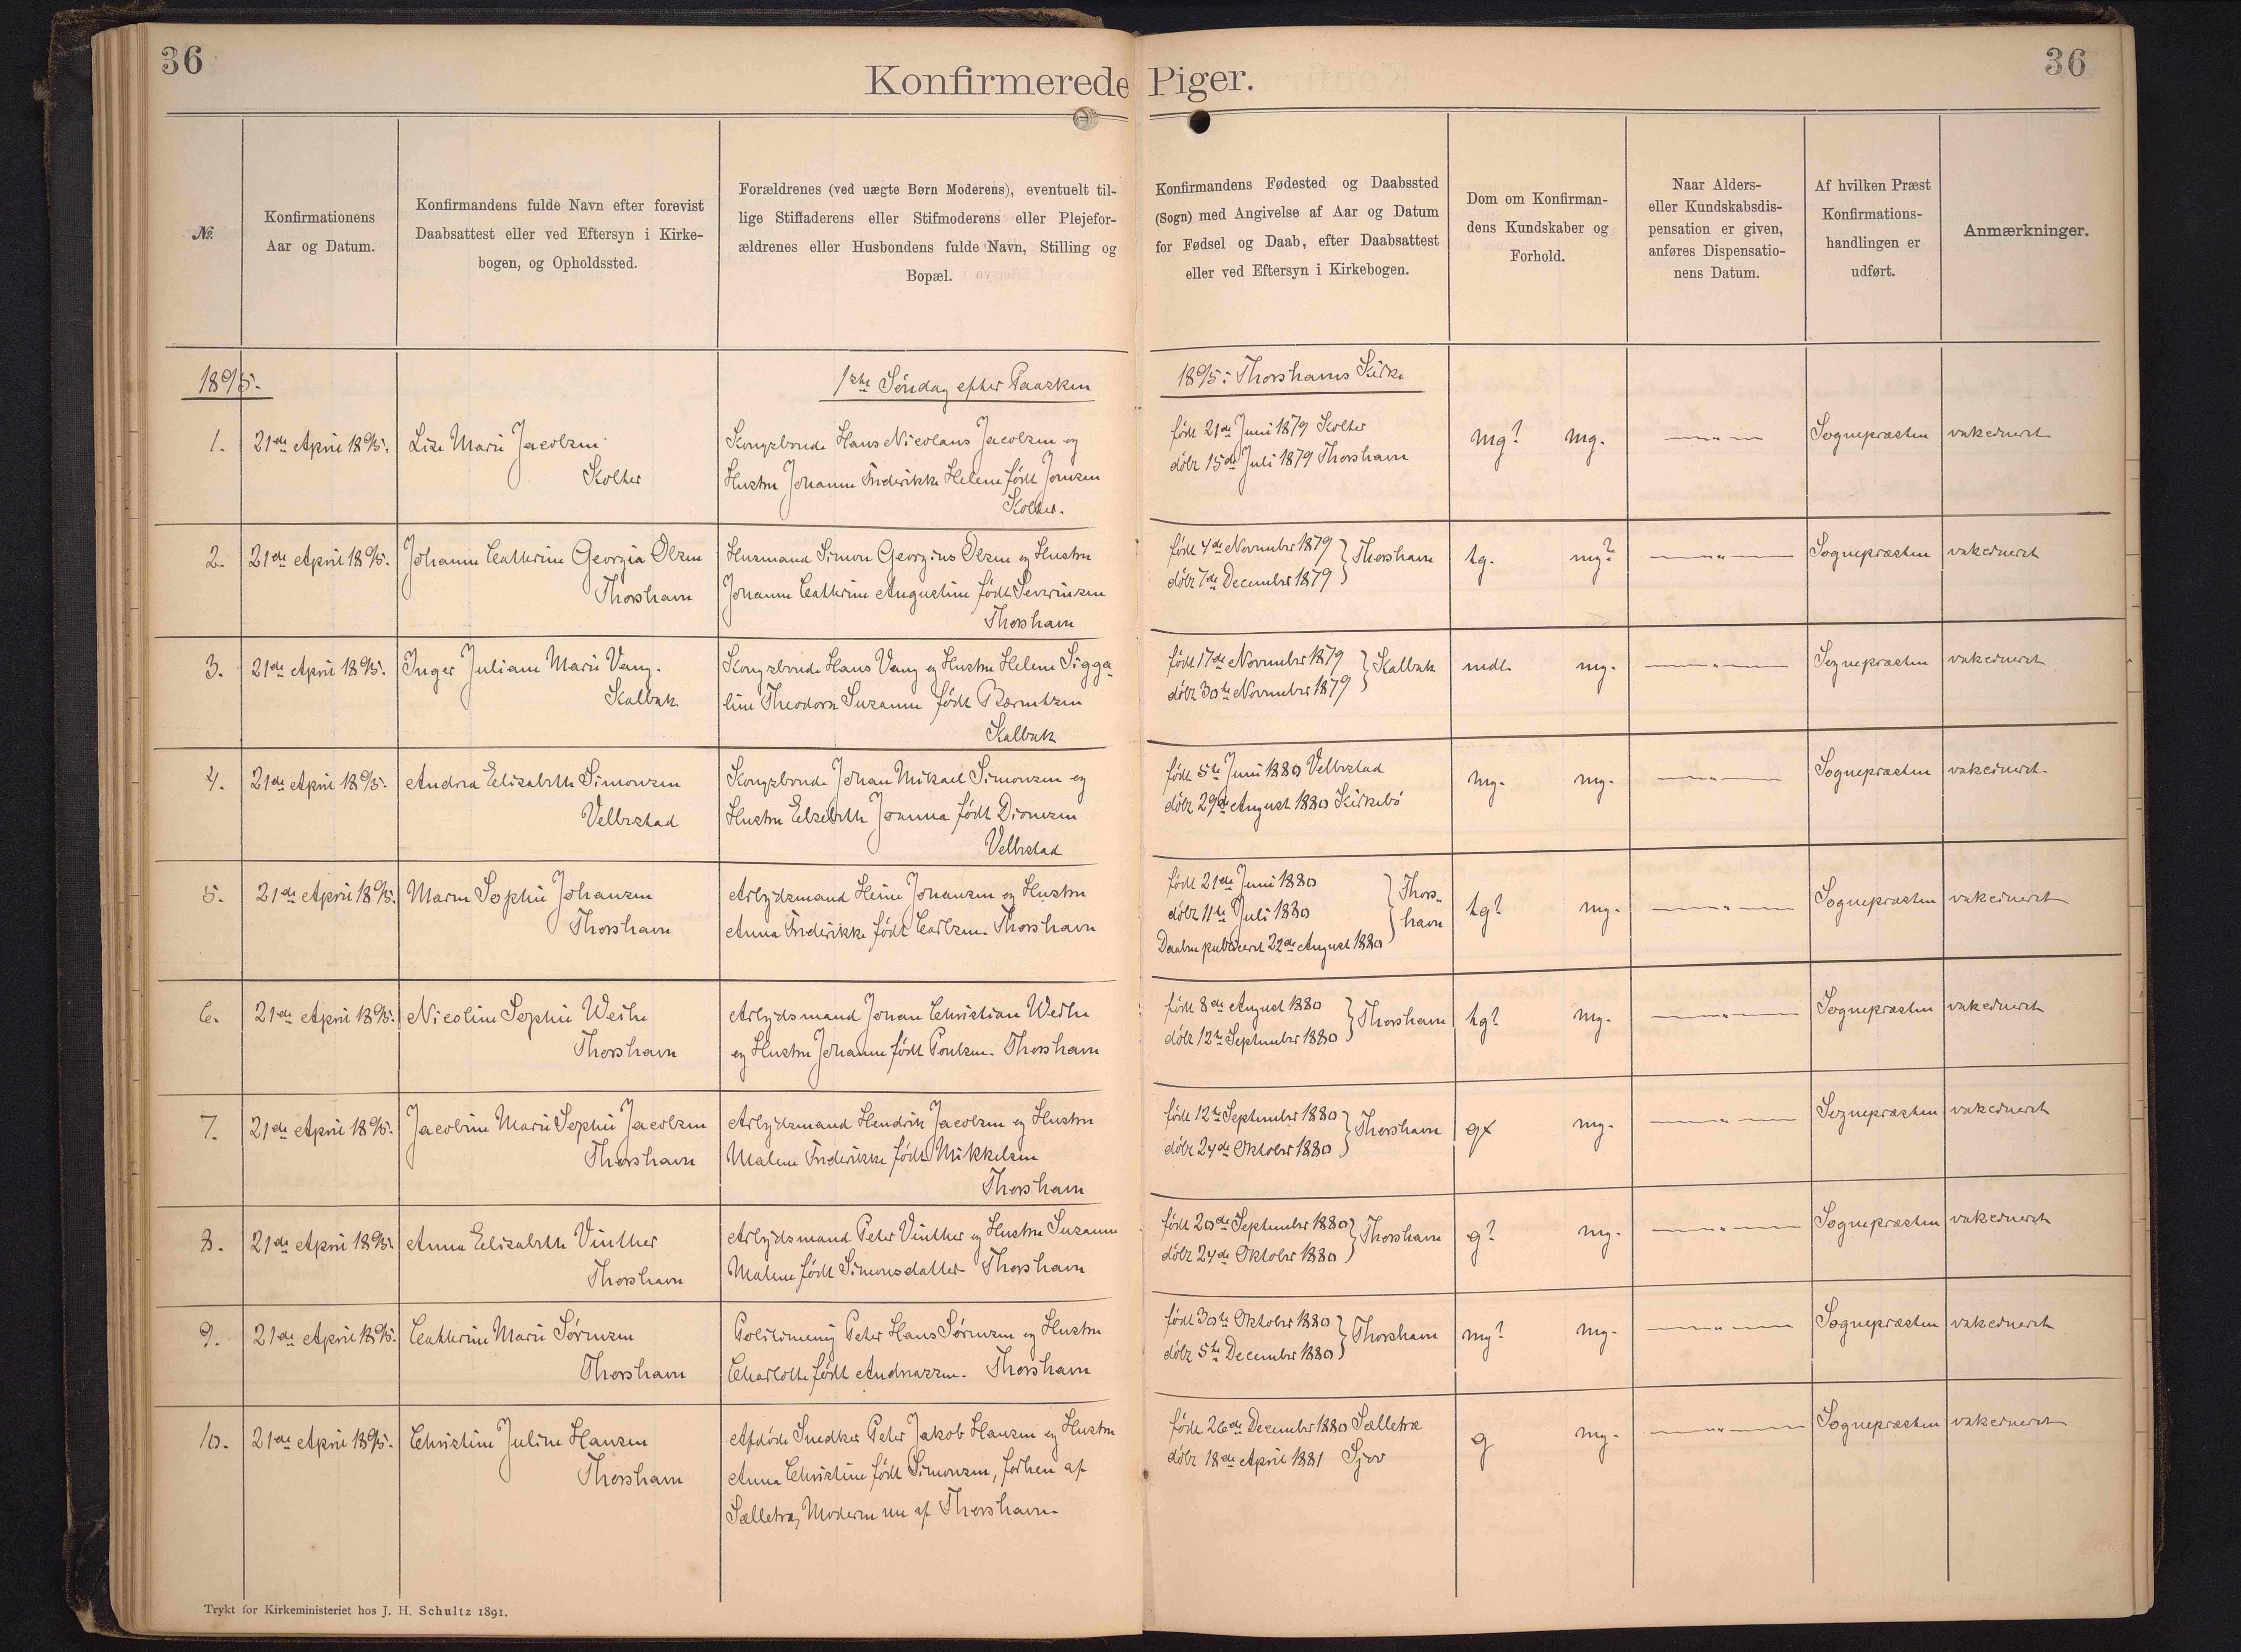 36
Konfirmerede Piger.
36
№.
Konfirmationens
Aar og Datum.
Konfirmandens fulde Navn efter forevist
Daabsattest eller ved Eftersyn i Kirke-
bogen, og Opholdssted.
Forældrenes (ved uægte Børn Moderens), eventuelt til-
lige Stiffaderens eller Stifmoderens eller Plejefor-
ældrenes eller Husbondens fulde Navn, Stilling og
Bopæl.
Konfirmandens Fødested og Daabssted
(Sogn) med Angivelse af Aar og Datum
for Fødsel og Daab, efter Daabsattest
eller ved Eftersyn i Kirkebogen.
Dom om Konfirman-
dens Kundskaber og
Forhold.
Naar Alders-
eller Kundskabsdis-
pensation er given,
anføres Dispensatio-
nens Datum.
Af hvilken Præst
Konfirmations-
handlingen er
udført.
Anmærkninger.
1895.
1ste Søndag efter Paasken
1895: Thorshavns Kirke
1.
21de April 1895.
Lise Marie Jacobsen
Kolter
Kongsbonde Hans Nicolaus Jacobsen og
Hustru Johanne Frederikke Helene født Joensen
Kolter.
født 21de Juni 1879 Kolter
døbt 15de Juli 1879 Thorshavn
mg? mg.
— " —
Sognepræsten
vakcineret
2.
21de April 1895.
Johanne Cathrine Georgia Olsen
Thorshavn
Husmand Simon Georgius Olsen og Hustru
Johanne Cathrine Augustine født Severinsen
Thorshavn
født 4de November 1879
døbt 7de December 1879
} Thorshavn
tg. mg?
— " —
Sognepræsten
vakcineret
3.
21de April 1895.
Inger Juliane Marie Vang.
Kalbak
Kongsbonde Hans Vang og Hustru Helene Sigga-
line Theodora Susanne født Bærentsen
Kalbak
født 17de November 1879
døbt 30te November 1879
} Kalbak
mdl. mg.
— " —
Sognepræsten
vakcineret
4.
21de April 1895.
Andrea Elisabeth Simonsen
Velbestad
Kongsbonde Johan Mikael Simonsen og
Hustru Elsebeth Joanna født Dionesen
Velbestad
født 5te Juni 1880 Velbestad
døbt 29de August 1880 Kirkebø
mg. mg.
— " —
Sognepræsten
vakcineret
5.
21de April 1895.
Maren Sophie Johansen
Thorshavn
Arbejdsmand Heine Johansen og Hustru
Anna Frederikke født Carlsen. Thorshavn
født 21de Juni 1880
døbt 11te Juli 1880
Daaben publiceret 22de August 1880
} Thors-
havn
tg? mg.
— " —
Sognepræsten
vakcineret
6.
21de April 1895.
Nicoline Sophie Weihe
Thorshavn
Arbejdsmand Johan Christian Weihe
og Hustru Johanne født Poulsen. Thorshavn
født 8de August 1880
døbt 12te September 1880
} Thorshavn
tg? mg.
— " —
Sognepræsten
vakcineret
7.
21de April 1895.
Jacobine Marie Sophie Jacobsen
Thorshavn
Arbejdsmand Hendrik Jacobsen og Hustru
Malene Frederikke født Mikkelsen
Thorshavn
født 12te September 1880
døbt 24de Oktober 1880
} Thorshavn
gx mg.
— " —
Sognepræsten
vakcineret
8.
21de April 1895.
Anna Elisabeth Vinther
Thorshavn
Arbejdsmand Peter Vinther og Hustru Susanne
Malene født Simonsdatter Thorshavn
født 20de September 1880
døbt 24de Oktober 1880
} Thorshavn
g? mg.
— " —
Sognepræsten
vakcineret
9.
21de April 1895.
Cathrine Marie Sørensen
Thorshavn
Politimenig Peter Hans Sørensen og Hustru
Charlotte født Andreassen. Thorshavn
født 30te Oktober 1880
døbt 5te December 1880
} Thorshavn
mg? mg.
— " —
Sognepræsten
vakcineret
10.
21de April 1895.
Christine Juline Hansen
Thorshavn
Afdøde Snedker Peter Jakob Hansen og Hustru
Anna Christine født Simonsen, forhen af
Sælletræ, Moderen nu af Thorshavn.
født 26de December 1880 Sælletræ
døbt 18de April 1881 Sjov
g mg.
— " —
Sognepræsten
vakcineret
Trykt for Kirkeministeriet hos J. H. Schultz 1891.